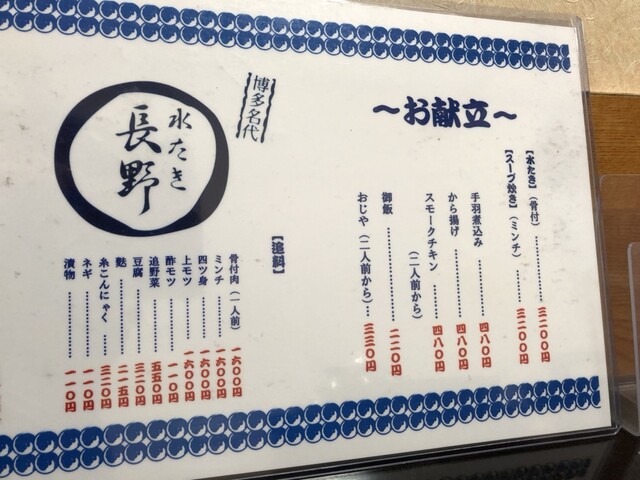 ～お献立～
【水たき】（骨付）…………三二〇〇円
【スープ炊き】（ミンチ）……三二〇〇円
手羽煮込み…………四八〇円
から揚げ…………四八〇円
スモークチキン…………四八〇円
（二人前から）
御飯…………二二〇円
おじや（二人前から）…三三〇円
博多名代
水たき
長野
骨付肉（一人前）一六〇〇円
ミンチ…………一六〇〇円
四ツ身…………一六〇〇円
上モツ…………一六〇〇円
酢モツ…………一一〇円
追野菜…………五五〇円
豆腐…………三二〇円
麩…………二一五円
糸こんにゃく……三二〇円
ネギ…………一一〇円
漬物…………一一〇円